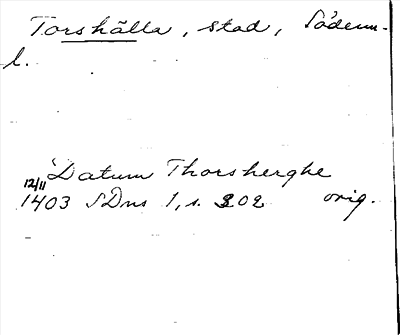 Torshälla, stad, Söderm-
l.
Datum Thorsherghe
12/11
1403 SDns 1, s. 302 orig.